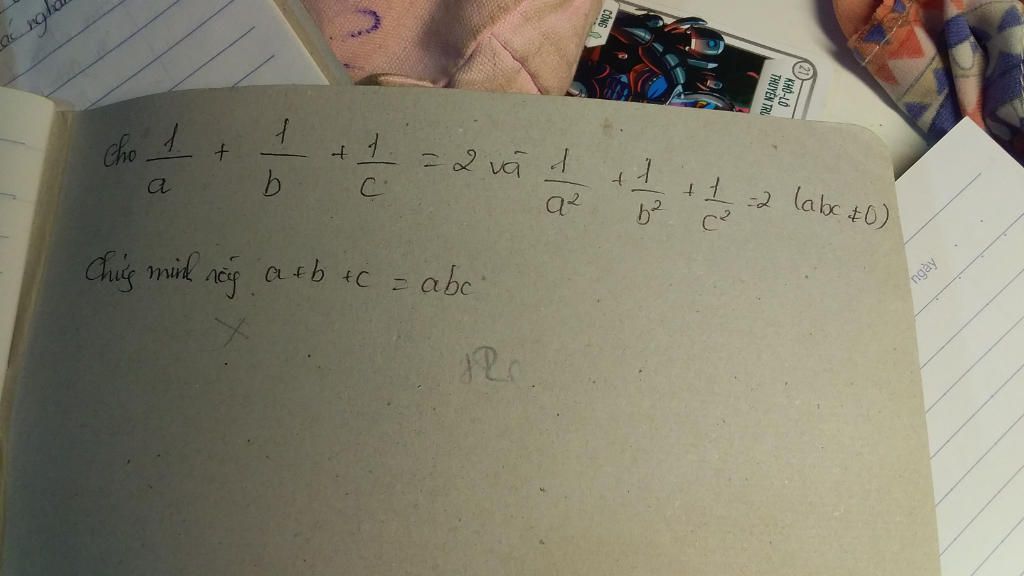 ác nghăn
CÔNG
21
KHU-LÔ
THUYỀN TRƯ
Cho 1/a + 1/b + 1/c = 2 và 1/a² + 1/b² + 1/c² = 2 (abc ≠ 0)
Chứng minh rằng a + b + c = abc
ngày